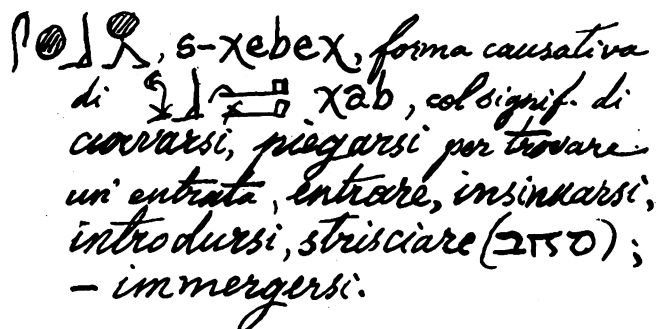 𓋴𓐍𓃀, s-χebeχ, forma causativa
di χab, col signif. di
curvarsi, piegarsi per trovare
un' entrata, entrare, insinuarsi,
introdursi, strisciare (סחב);
– immergersi.